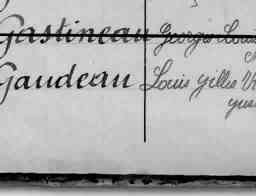 Gastineau Georges Louis
Gaudeau Louis Gilles Vi